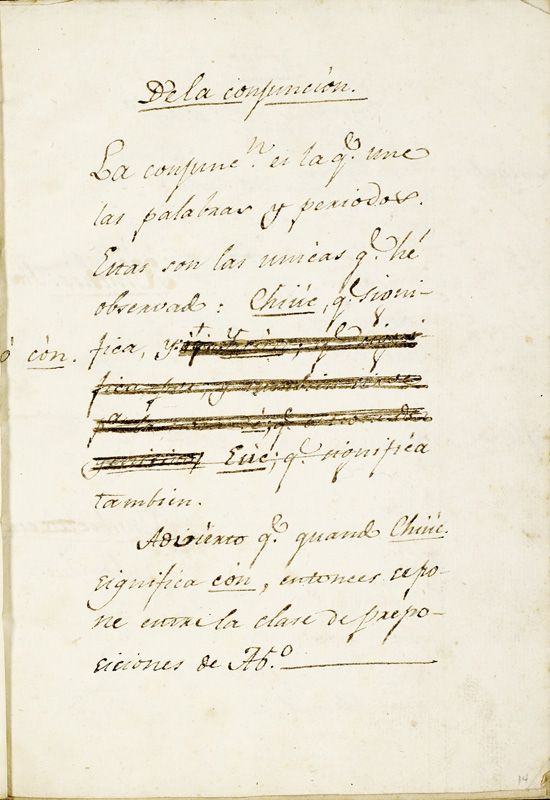 De la conjuncion.
La conjunc.n es la q.e une
las palabras y periodos.
Estas son las unicas q.e hé
observad: Chiúc, q.e signi-
ó cón. fica, y
Eúc; q.e significa
tambien.
Adivierto q.e quand Chiúc
significa cón, entonces se po-
ne entre la clase de prepo-
siciones de Ab.o
14